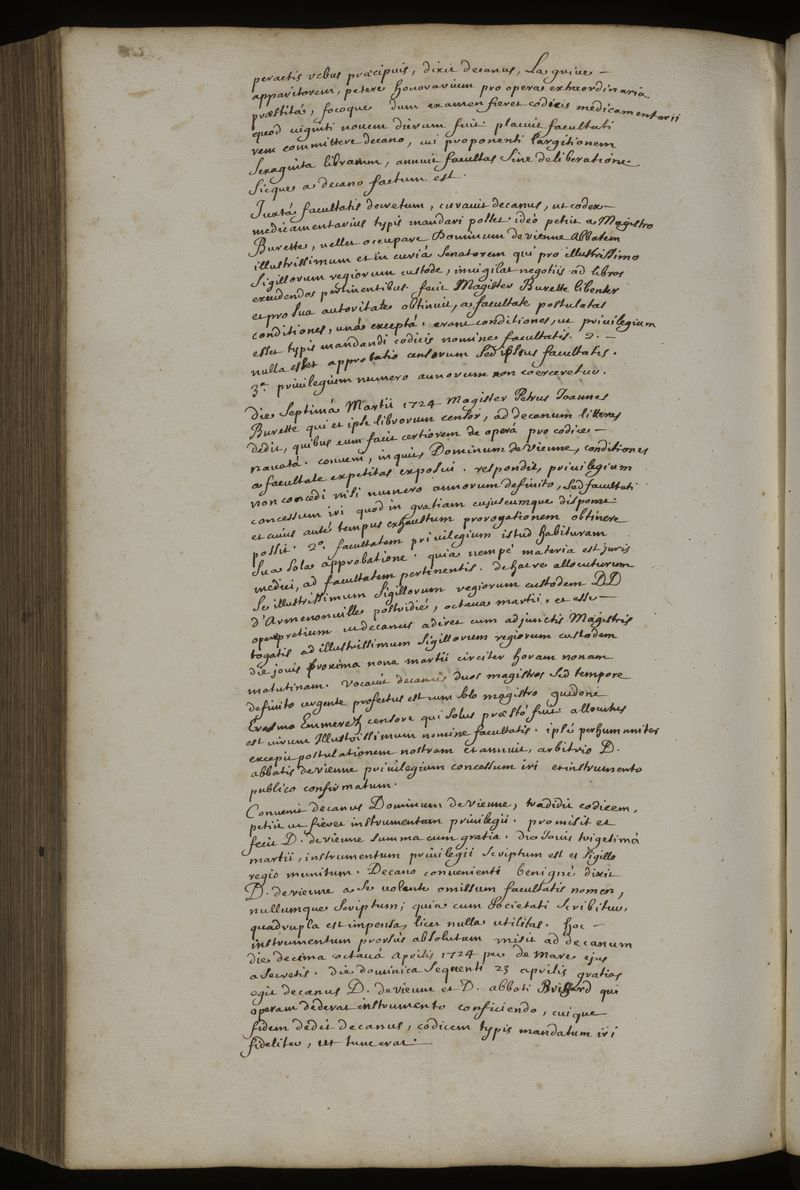 peractis rebus præcipuis, dixit decanus, La grive -
apparitorem, petere honorarium pro opera extraordinaria
præstitá, focoque dum examen fieret codicis medicamentarii
quod viginti novem dierum fuit. placuit facultati
rem committere decano, cui proponenti largitionem
sexaginta librarum, annuit facultas sine deliberatione.
sicque a decano factum est.
Juxta facultatis decretum, curavit decanus, ut codex -
medicamentarius typis mandari posset. ideò petiit a Magistro
Burette, vellet occupare Dominum de vienne Abbatem
illustrissimum et in curiâ Senatorem qui pro illustrissimo
Sigillorum regiorum custode, invigilat negotiis ad libros
excudendos pertinentibus. fecit Magister Burette libenter
et pro sua autoritate obtinuit, a facultate postulatas
conditiones, unâ exceptâ. erant conditiones, ut privilegium
esset typis mandandi codicis nomine facultatis. 2. -
nulla esset approbatio censorum sed ipsius facultatis.
3.° privilegium numero annorum non coerceretur.
Die Septimâ Martii 1724 Magister Petrus Joannes
Burette qui et ipse librorum censor, ad decanum litteras
dedit, quibus eum facit certiorem de operâ pro codice -
navatâ. conveni, inquit, Dominum de Vienne, conditiones
a facultate expetitas exposui. respondit, privilegium
non concedi nisi numero annorum definito, sed facultati
concessum iri quod in gratiam cujuscumque disponere
et cuius ante tempus exhaustum prorogationem obtinere
possit. 2.° facultatem privilegium istud habituram
sua sola approbatione. quia nempè materia est juris
medici, ad facultatem pertinentis. de hac re allocuturum
se illustrissimum Sigillorum regiorum custodem DD
d'Armenonville postridiè, octava martii, et esse -
operæ pretium ut decanus adiret cum adjunctis Magistris
togatis ad illustrissimum Sigillorum regiorum custodem
die jovis proxima nona martii circiter horam nonam
matutinam. vocavit decanus duos magistros sed tempore
definito urgente profectus est cum solo magistro guidone
Erasmo Emmerez censore qui solus præstò fuit. allocutus
est virum Illustrissimum nomine facultatis. ipse perhumaniter
excepit postulationem nostram et annuit, arbitrio D.
abbatis de Vienne privilegium concessum iri et instrumento
publico confirmatum.
Convenit decanus Dominum de Vienne, tradidit codicem,
petiit ut fieret instrumentum privilegii. promisit et
fecit D. de vienne summa cum gratia. die Jovis trigesimâ
martii, instrumentum privilegii scriptum est et sigillo
regio munitum. Decano convenienti benignè dixit
D. de vienne a se volente omissum facultatis nomen,
nullumque scriptum; quia cum societati scribitur,
quadrupla est impensa, licet nulla utilitas. hoc -
instrumentum prorsùs absolutum misit ad decanum
die decima octavâ Aprilis 1724 per de Mare ejus
a secretis. die dominica sequenti 23 aprilis gratias
egit decanus D. de vienne et D. abbati Brissard qui
operam dederat instrumento conficiendo, cuique
fidem dedit decanus, codicem typis mandatum iri
fideliter, ut tunc erat.